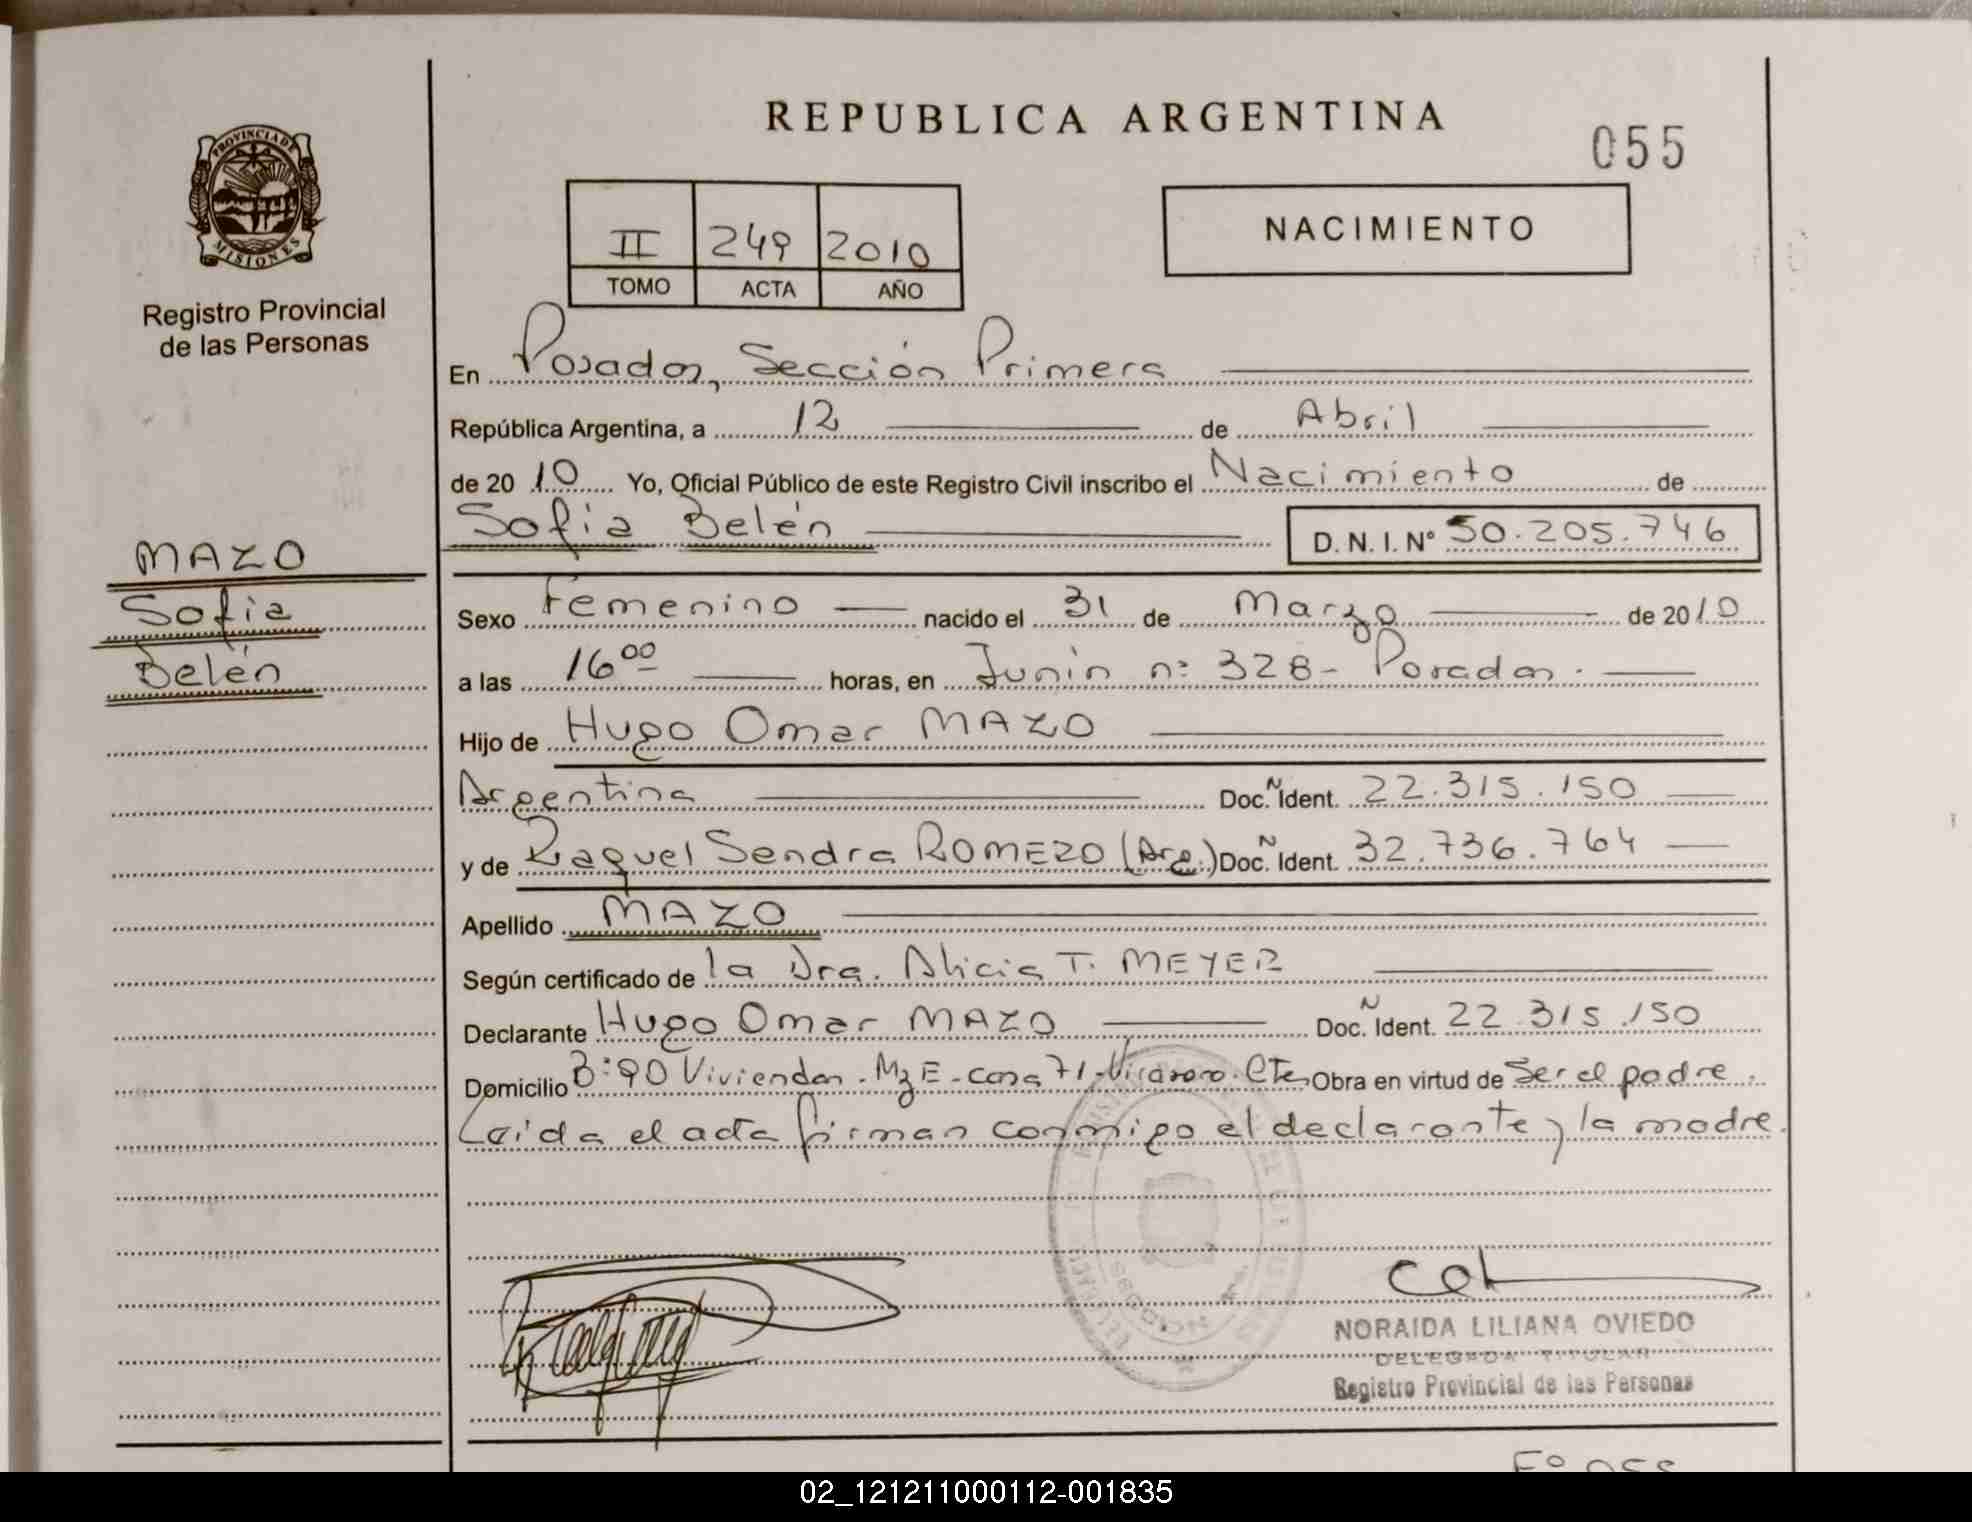 REPUBLICA ARGENTINA
055
PROVINCIA DE
MISIONES
Registro Provincial
de las Personas
II 249 2010
TOMO ACTA AÑO
NACIMIENTO
En Posadas, Sección Primera
República Argentina, a 12 de Abril
de 2010 Yo, Oficial Público de este Registro Civil inscribo el Nacimiento de
Sofia Belén D. N. I. Nº 50.205.746
MAZO
Sofia
Belén
Sexo Femenino nacido el 31 de Marzo de 2010
a las 16 00 horas, en Junín nº 328 - Posadas.
Hijo de Hugo Omar MAZO
Argentina Doc. Ñ Ident. 22.315.150
y de Raquel Sandra ROMERO (Arg.) Doc. Ñ Ident. 32.736.764
Apellido MAZO
Según certificado de la Dra. Alicia T. MEYER
Declarante Hugo Omar MAZO Doc. Ñ Ident. 22.315.150
Domicilio B: 90 Viviendas - Mz E - casa 71 - Virasoro - Ctes Obra en virtud de Ser el padre.
Leída el acta firman conmigo el declarante y la madre.
NORAIDA LILIANA OVIEDO
DELEGADA TITULAR
Registro Provincial de las Personas
Fº 055
02_121211000112-001835